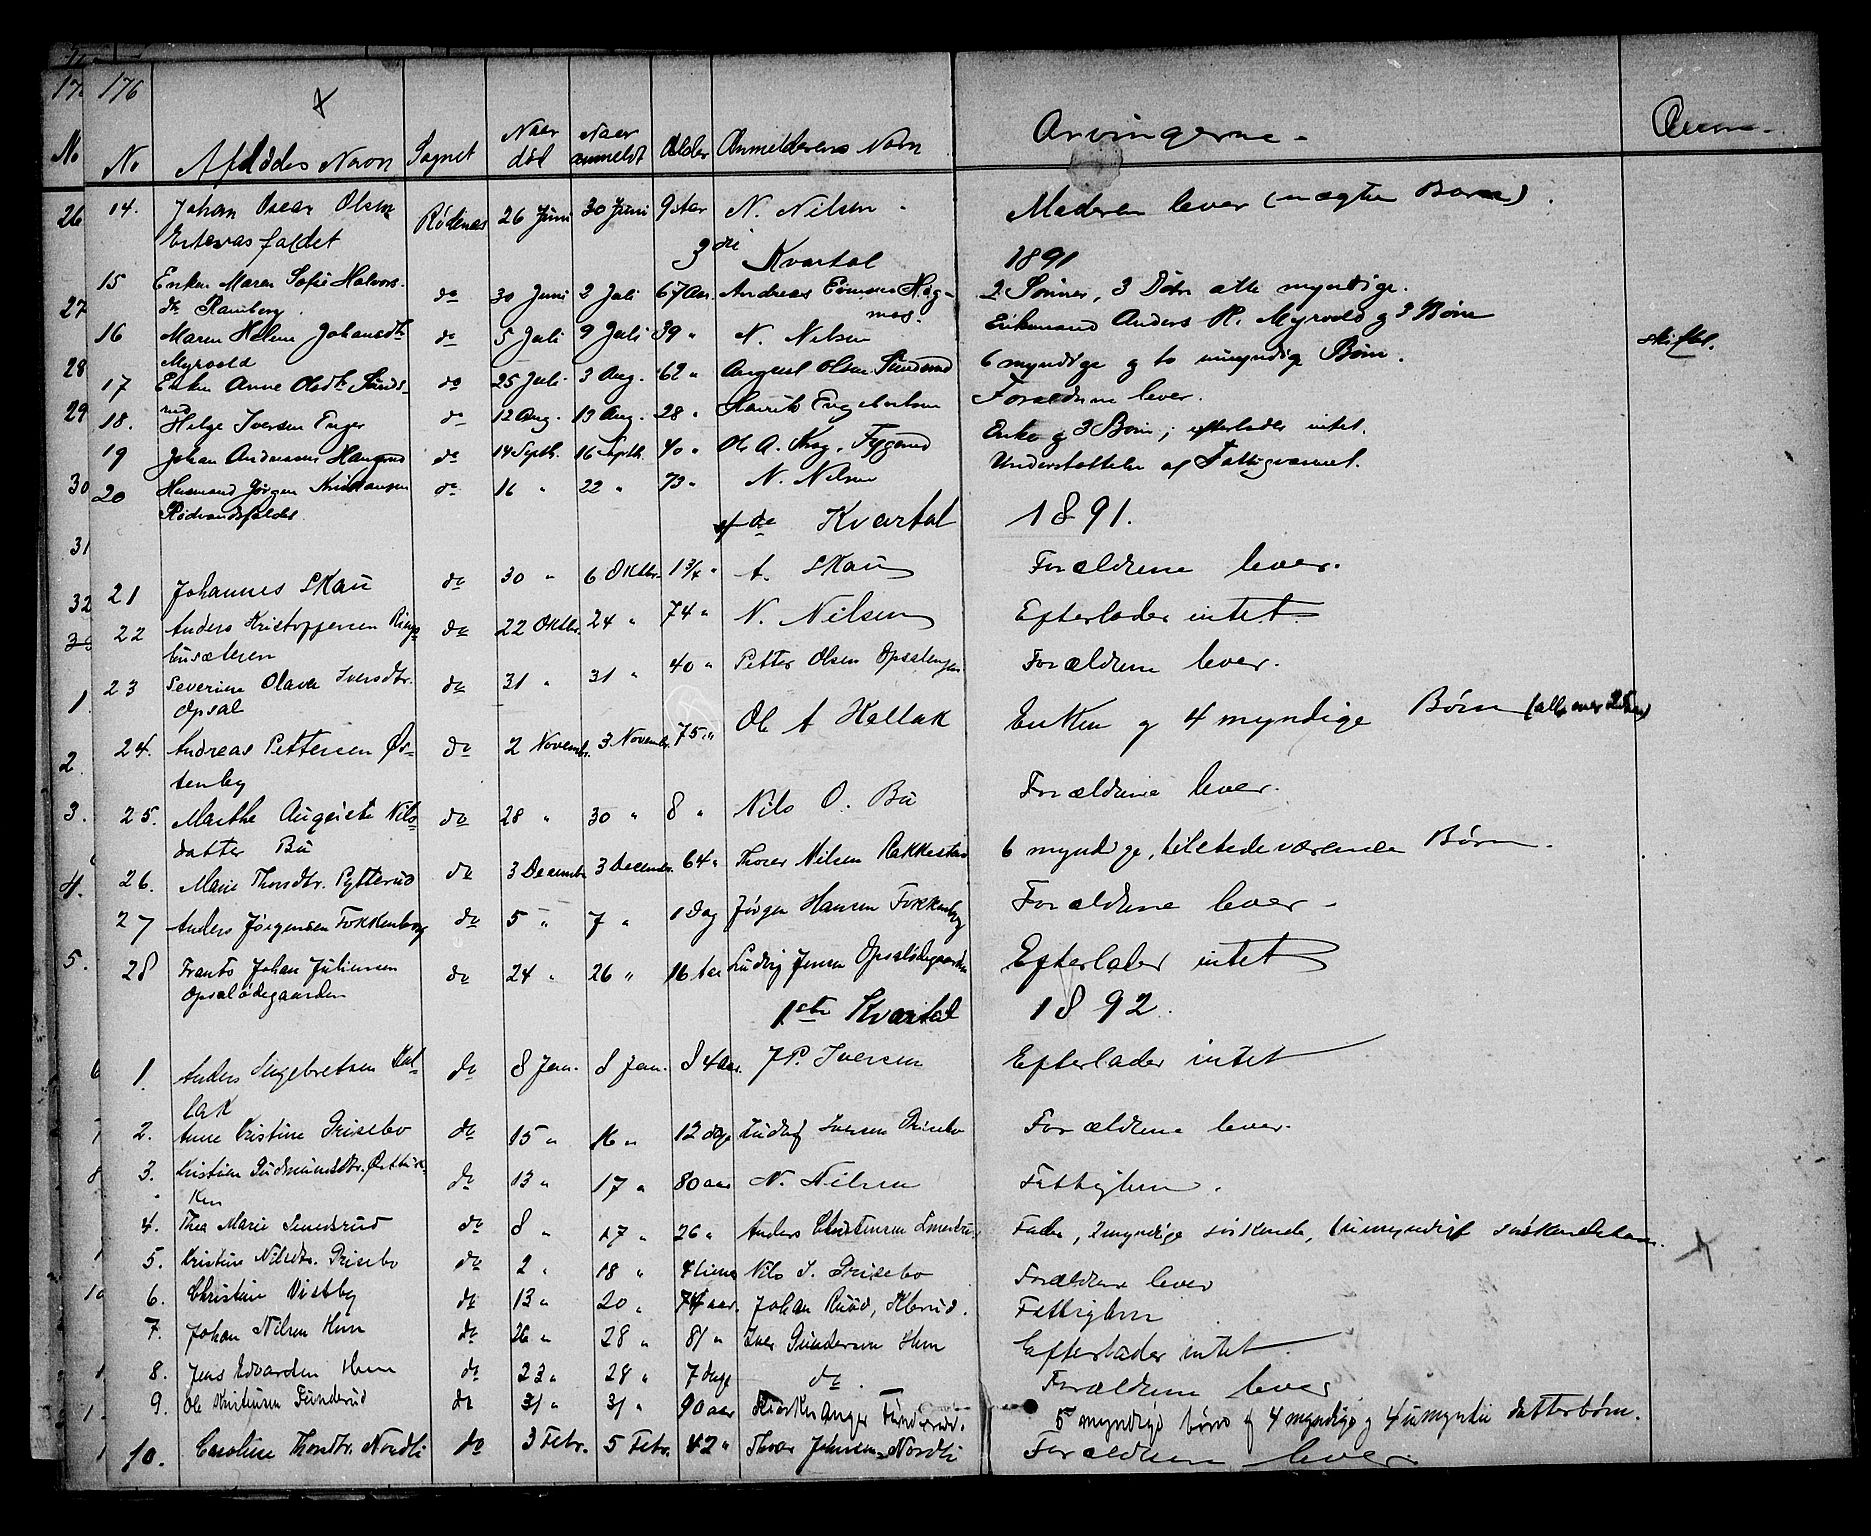 176
No Afdødes Navn Sognet Naar død Naar anmeldt Alder Anmelderens Navn Arvingerne Anm.
14. Johan Oscar Olsen Rødenæs 26 Juni 30 Juni 9 Aar N. Nilsen Moderen lever (uægte Barn).
3die Kvartal 1891
15 Enken Maren Sofie Halvors- do 30 Juni 2 Juli 67 Aar Andreas 2 Sønner, 3 Døtre alle myndige.
dt. Ramberg.
16 Maren Helene Johansdt. do 5 Juli 9 Juli 39 " N. Nilsen Enkemand Anders H. Myrvold og 3 Børn skiftet.
Myrvold
17 Enken Anne Olsdt. do 25 Juli 3 Aug. 62 " August Olsen 6 myndige og to umyndige Børn.
18. Helge Iversen Enger do 12 Aug. 13 Aug. 28 " Henrik Engebretsen Forældrene lever.
19 Johan Andreasen do 14 Septb. 16 Septb. 40 " Ole A. Krog, Enke og 3 Børn; efterlader intet.
20 Husmand Jørgen Kristiansen do 16 " 22 " 73 " N. Nilsen Understøttelse af Fattigvæsenet.
4de Kvartal 1891.
21 Johannes Skau do 30 " 6 Oktbr. 1 3/4 " A. Skau Forældrene lever.
22 Anders Kristoffersen do 22 Oktbr. 24 " 74 " N. Nilsen Efterlader intet.
23 Severine Olava Iversdtr. do 31 " 31 " 40 " Petter Olsen Opsalengen Forældrene lever.
Opsal
24. Andreas Pettersen Øs- do 2 Novembr. 3 Novembr. 75 " Ole A Kollak Enken og 4 myndige Børn (alle over
tenby
25. Marthe Auguste Nils- do 28 " 30 " 8 " Nils O. Bu Forældrene lever.
datter Bu
26. Marie Thorsdtr. Pytterud do 3 Decembr. 3 Decembr. 64 " Thorer Nilsen Rakkestad 6 myndige, tilstedeværende Børn.
27 Anders Jørgensen Fokkenborg do 5 " 7 " 1 Dag Jørgen Hansen Fokkenborg Forældrene lever.
28 Frants Johan Juliussen do 24 " 26 " 16 Aar Ludvig Jensen Opsalødegaarden Efterlader intet
Opsalødegaarden
1ste Kvartal 1892.
1. Anders Engebretsen Kol- do 8 Jan. 8 Jan. 84 aar. J P. Iversen Efterlader intet
lak
2. Anne Kristine Grisebo do 15 " 16 " 12 dage Ludvig Iversen Grisebo Forældrene lever.
3. Kristine Gudmundsdtr. do 13 " 17 " 80 aar N. Nilsen Fattiglem.
4. Thea Marie do 8 " 17 " 26 " Anders Christensen Fader, 2 myndige søskende, umyndigt søskendebarn.
5. Kristine Nilsdtr. Grisebo do 2 " 18 " 4 timer Nils I. Grisebo Forældrene lever
6. Christine Vistby do 13 " 20 " 74 aar. Johan Fattiglem
7. Johan Nilsen Hem do 26 " 28 " 81 " Iver Gundersen Hem Efterlader intet.
8. Jens Edvardsen Hem do 23 " 28 " 7 dage do. Forældrene lever
9. Ole Kristiansen Funderud do 31 " 31 " 90 aar Funderud. 5 myndige børn og 4 myndige og 4 umyndige datterbørn.
10. Caroline Thorsdtr. Nordli do 3 Febr. 5 Febr. 42 " Thorer Johnsen Nordli Forældrene lever.